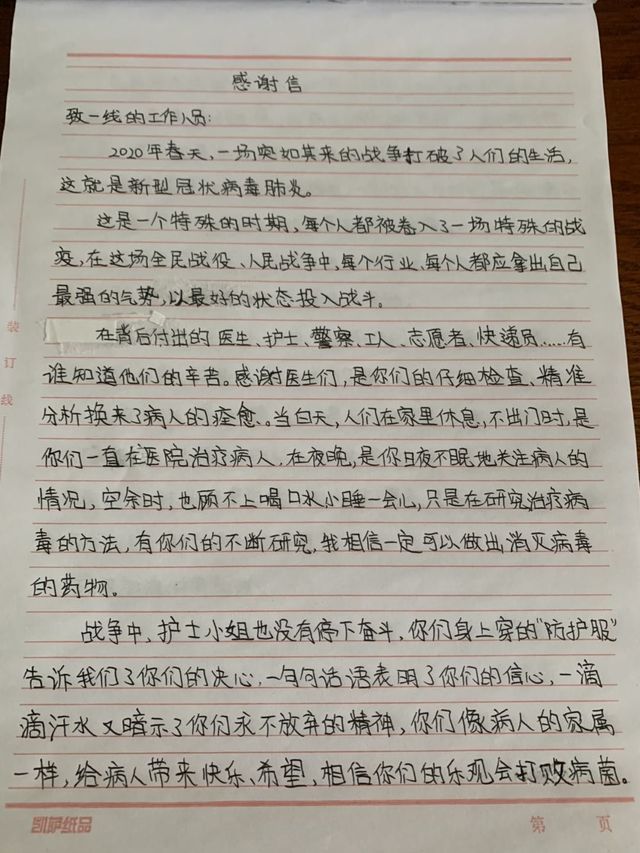 感谢信
致一线的工作人员：
2020年春天，一场突如其来的战争打破了人们的生活，
这就是新型冠状病毒肺炎。
这是一个特殊的时期，每个人都被卷入了一场特殊的战
疫，在这场全民战役、人民战争中，每个行业、每个人都应拿出自己
最强的气势，以最好的状态投入战斗。
在背后付出的医生、护士、警察、工人、志愿者、快递员……有
谁知道他们的辛苦。感谢医生们，是你们的仔细检查、精准
分析换来了病人的痊愈、。当白天，人们在家里休息，不出门时，是
你们一直在医院治疗病人，在夜晚，是你日夜不眠地关注病人的
情况，空余时，也顾不上喝口水小睡一会儿，只是在研究治疗病
毒的方法，有你们的不断研究，我相信一定可以做出消灭病毒
的药物。
战争中，护士小姐也没有停下奋斗，你们身上穿的“防护服”
告诉我们了你们的决心，一句句话语表明了你们的信心，一滴
滴汗水又暗示了你们永不放弃的精神，你们像病人的家属
一样，给病人带来快乐、希望，相信你们的乐观会打败病菌。
装
订
线
凯萨纸品
第 页